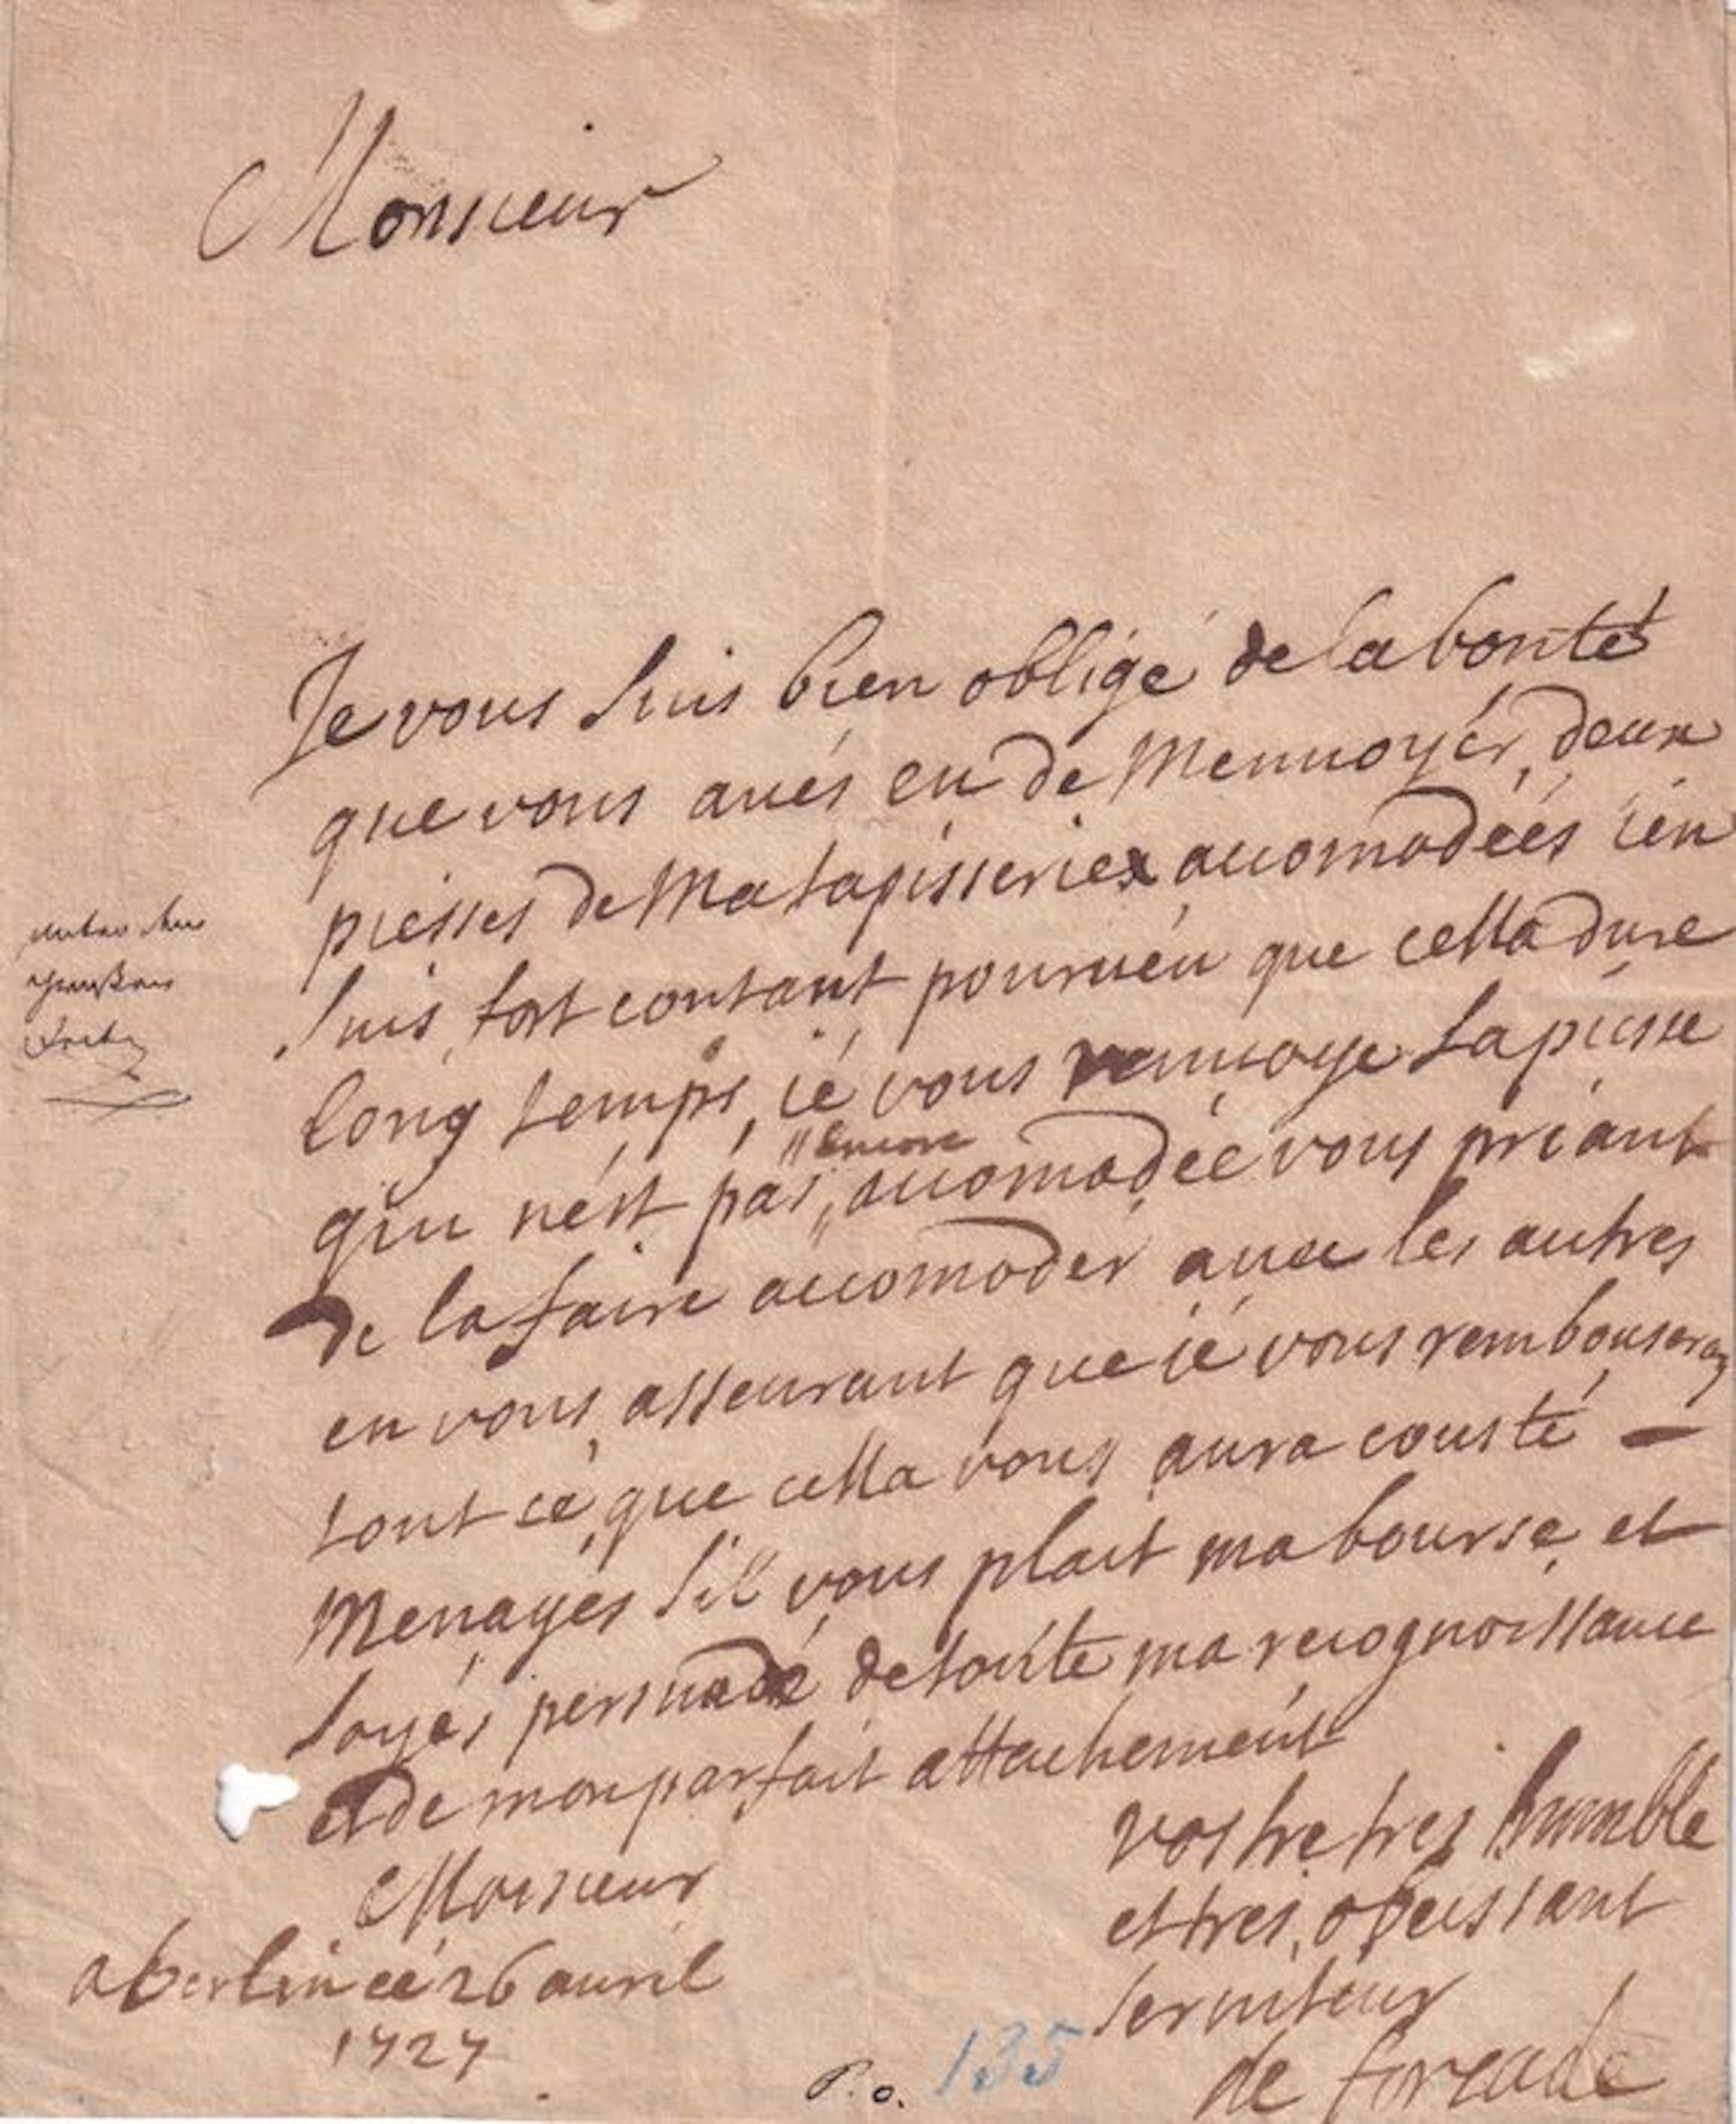 Monsieur
Je vous suis bien obligé de la bonté
que vous aués eu de Mennoyér, deux
piésses de Ma tapisserie accomodéés ién
suis fort contant pourueu que cella dure
long temps, ié vous renuoye la piésse
"encore
qui nést pas " accomodéé vous priant
de la faire accomoder auec les autres
en vous asseurant que ié vous rembouseray
tout cé que cella vous aura cousté —
Menagés sil vous plait ma bourse et
soyés persuadé de toutte ma recognoissance
et de mon parfait attachemént
Monsieur
vostre tres humble
et tres obeissant
seruiteur
a berlin cé 26 auril
1727
de forcade
P. o. 135